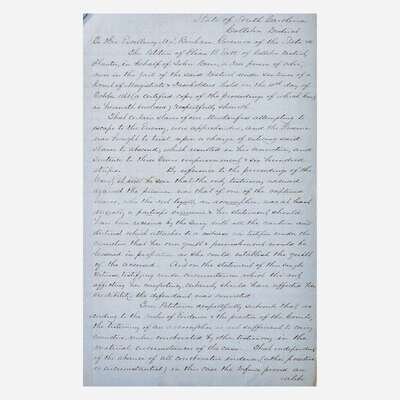 State of South Carolina
Colleton District
To His Excellency M. L. Bonham Governor of the State &c
The Petition of of Colleton District
Planter, in behalf of John a free person of color,
now in the jail of the said District under sentence of a
Court of Magistrate & Freeholders held on the day of
October (a certified copy of the proceedings of which Court
is herewith enclosed) respectfully sheweth
That certain slaves of one attempting to
escape to the Enemy, were apprehended, and the Prisoner
was brought to trial upon a charge of enticing said
slaves to abscond, which resulted in his conviction, and
sentence to three years imprisonment & six hundred
stripes. By reference to the proceedings of the
Court, it will be seen that the only testimony adduced
against the prisoner was that of one of the captured
slaves, who tho' not legally an accomplice, was at least
morally a particeps criminis & her statement should
have been received by the Jury with all the caution and
distrust which attaches to a witness who testifies under the
conviction that her own guilt & punishment would be
lessened in proportion as she could establish the guilt
of the accused. And on the statement of this single
witness, testifying under circumstances which tho' not
affecting her competency, certainly should have affected her
credibility, the defendant was convicted.
Your Petitioner respectfully submits that ac-
cording to the rules of Evidence & the practice of the Courts,
the testimony of an accomplice is not sufficient to carry
conviction, unless corroborated by other testimony in the
material circumstances of the case. That independent
of the absence of all corroborative evidence (either positive
or circumstantial) in this case the defence proved an
alibi